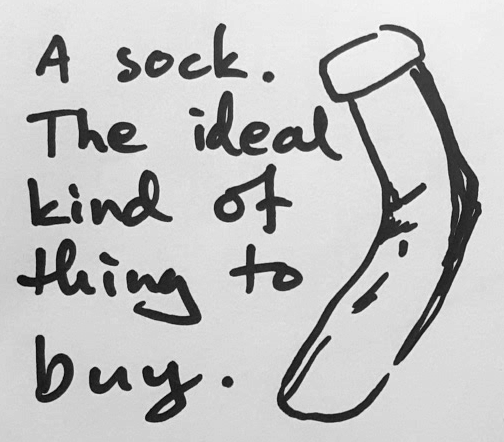 A sock.
The ideal
kind of
thing to
buy.